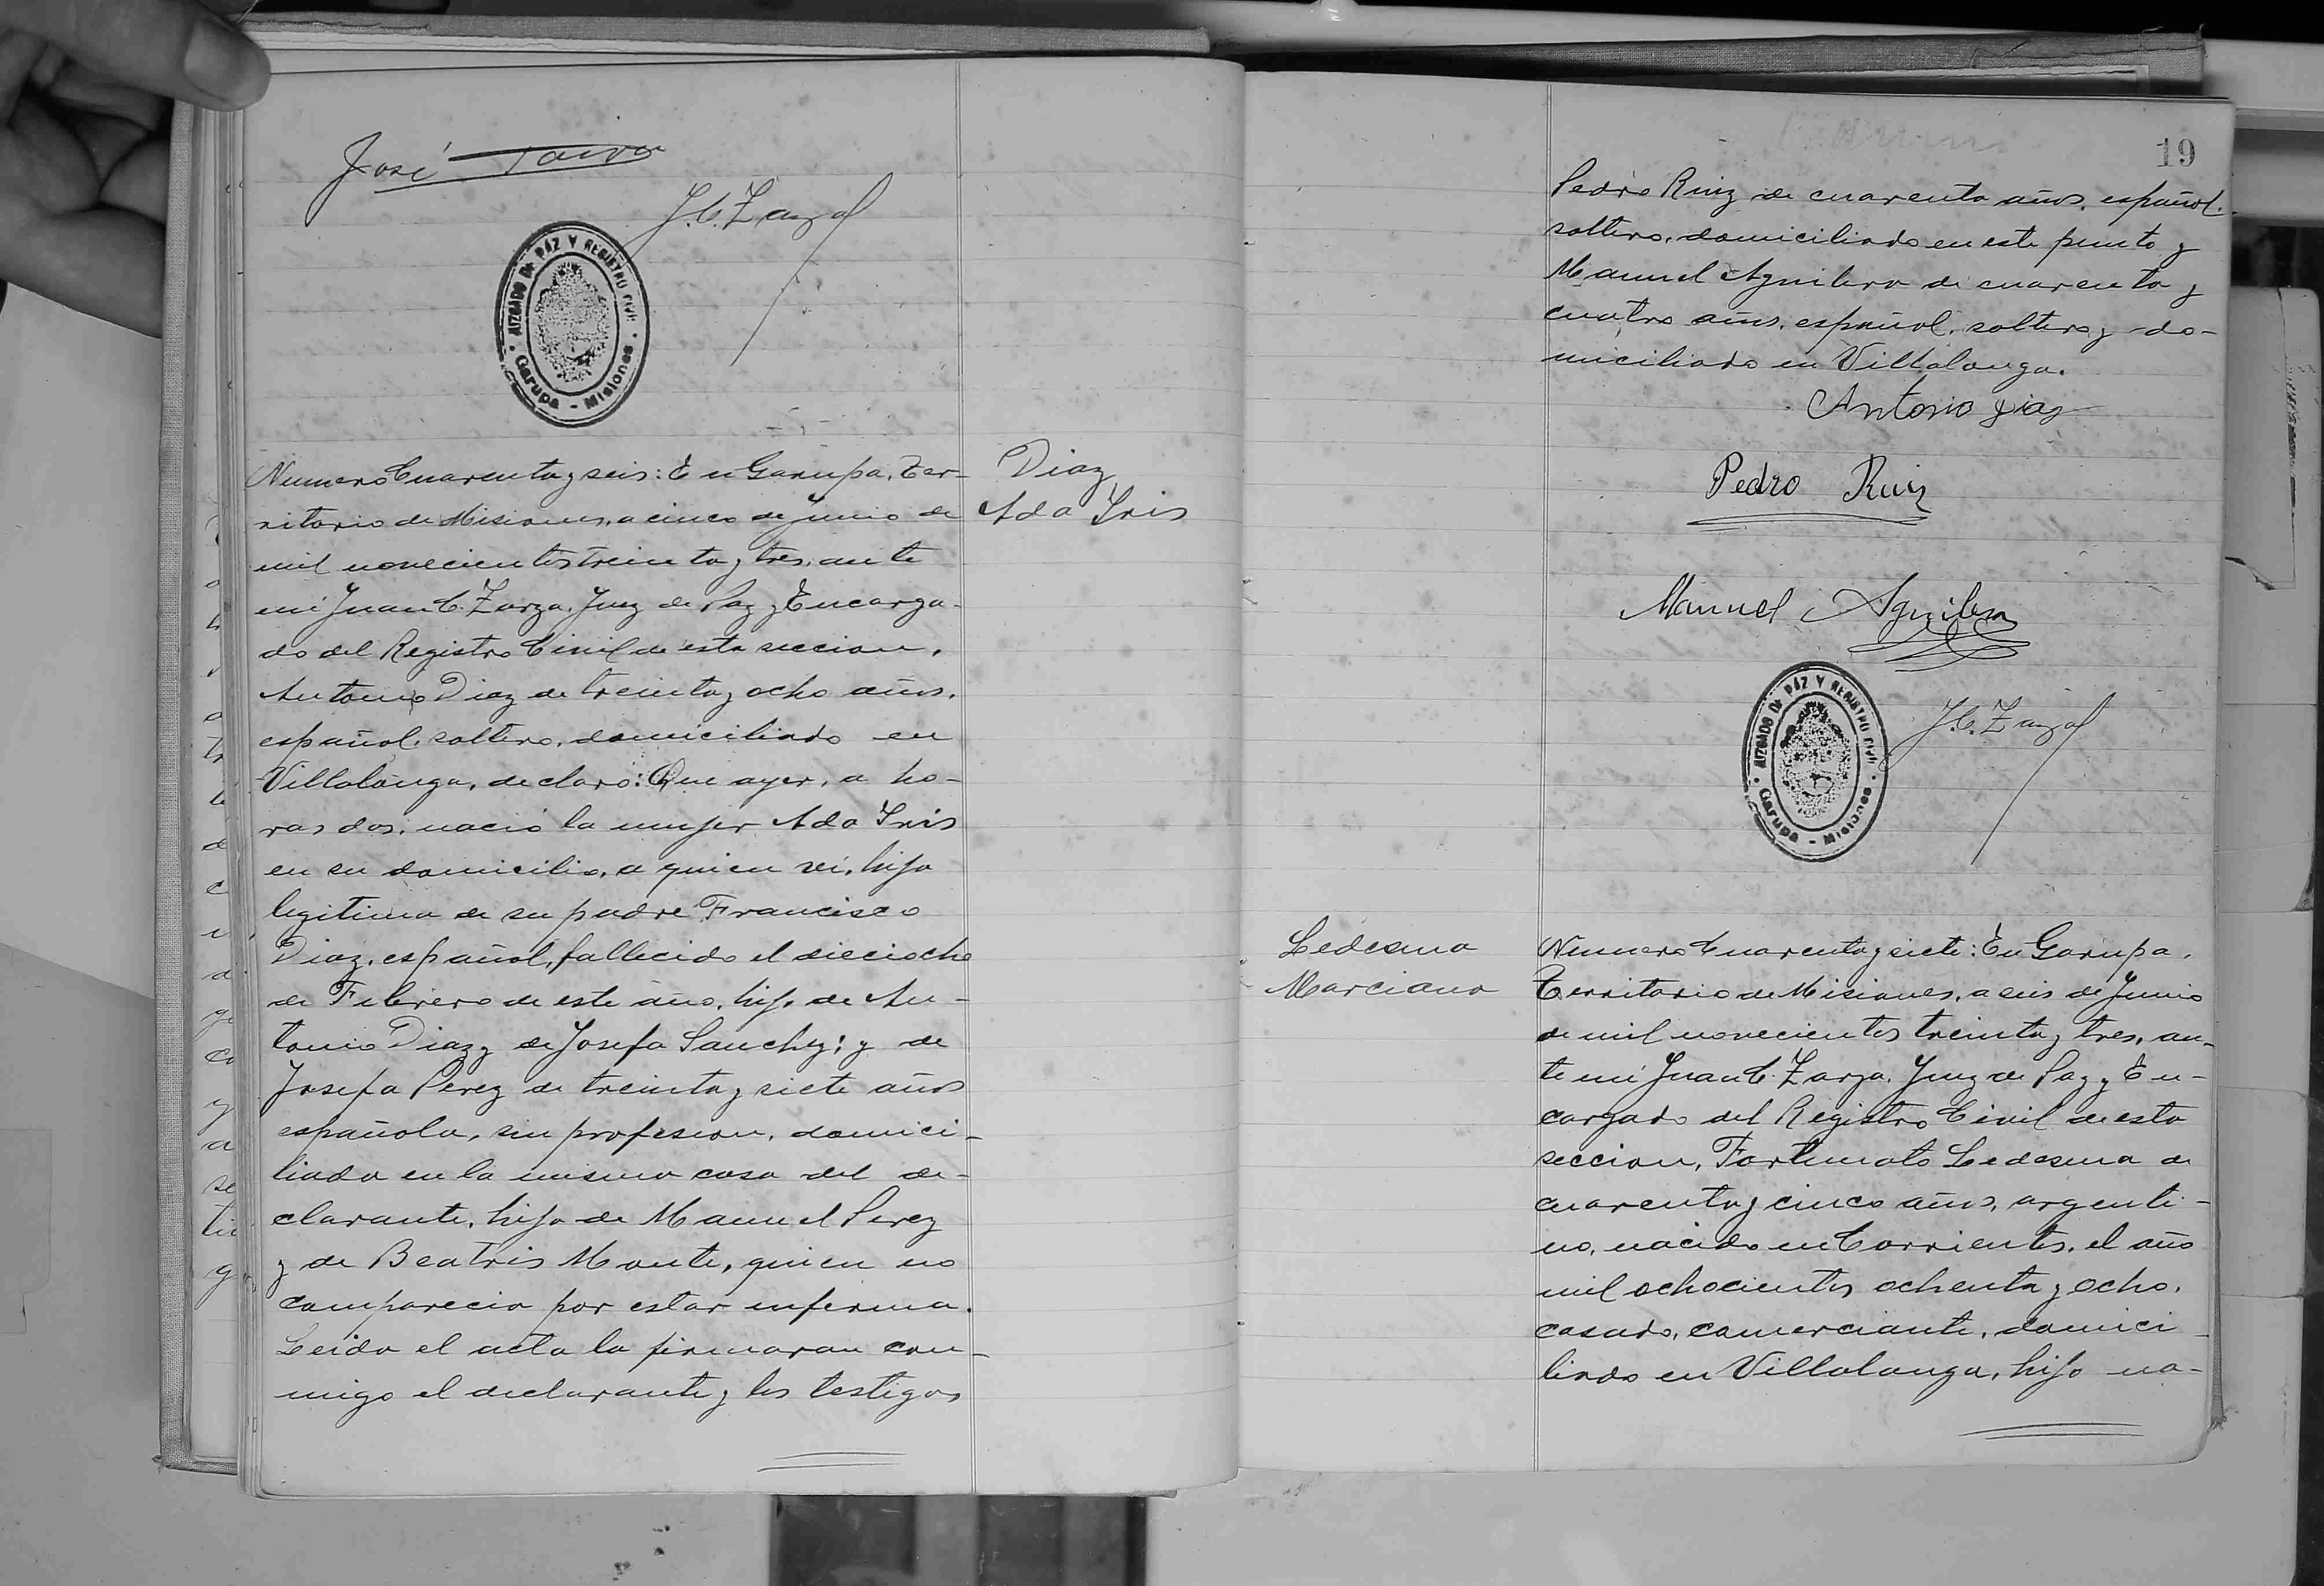 José Paiva
J. C. Zarza
JUZGADO DE PAZ Y REGISTRO CIVIL
Garupa - Misiones
Numero Cuarenta y seis: En Garupa, Ter-
ritorio de Misiones, a cinco de Junio de
mil novecientos treinta y tres, ante
mi Juan C. Zarza, Juez de Paz y Encarga-
do del Registro Civil de esta seccion,
Antonio Diaz de treinta y ocho años,
español, soltero, domiciliado en
Villalonga, declaro: Que ayer, a ho-
ras dos, nació la mujer Ada Iris
en su domicilio, a quien vi, hija
legitima de su padre Francisco
Diaz, español, fallecido el dieciocho
de Febrero de este año, hijo de An-
tonio Diaz y de Josefa Sanchez; y de
Josefa Perez de treinta y siete años
española, sin profesion, domici-
liada en la misma casa del de-
clarante, hija de Manuel Perez
y de Beatris Monte, quien no
comparecio por estar enferma.
Leida el acta la firmaron con-
migo el declarante y los testigos
Diaz
Ada Iris
19
Pedro Ruiz de cuarenta años, español,
soltero, domiciliado en este punto y
Manuel Aguilera de cuarenta y
cuatro años, español, soltero y do-
miciliado en Villalonga.
Antonio Diaz
Pedro Ruiz
Manuel Aguilera
J. C. Zarza
JUZGADO DE PAZ Y REGISTRO CIVIL
Garupa - Misiones
Ledesma
Marciana
Numero Cuarenta y siete: En Garupa,
Territorio de Misiones, a seis de Junio
de mil novecientos treinta y tres, an-
te mi Juan C. Zarza, Juez de Paz y En-
cargado del Registro Civil de esta
seccion, Fortunato Ledesma de
cuarenta y cinco años, argenti-
no, nacido en Corrientes, el año
mil ochocientos ochenta y ocho,
casado, comerciante, domici-
liado en Villalonga, hijo na-